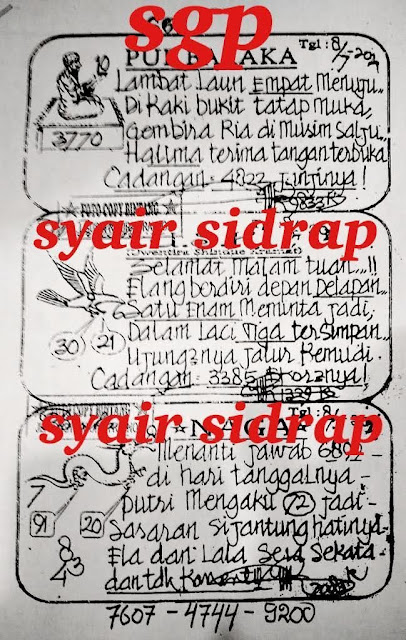 sgp
PURBATAKA
Tgl: 8/7-202
Lambat Laun Empat Menunggu..
Di Kaki bukit tatap muka,
Gembira Ria di Musim Salju..
Halima terima tangan terbuka
Cadangan: 4822 Jintinya!
3770
syair sidrap
Selamat malam tuan...!!
Elang berdiri depan Delapan..
Satu Enam Meminta jadi,
Dalam Laci Tiga tersimpan..
Ujungnya jalur Kemudi.
Cadangan: 3385 Ekornya!
30 21
syair sidrap
NAGA
Tgl: 8/
Menanti jawab 6891-
di hari tanggalnya-
putri Mengaku 72 jadi-
Sasaran Sijantung hatinya-
Ela dan Lala Seia Sekata-
dan tdk
7
91 20
8
43
7607 - 4744 - 9200